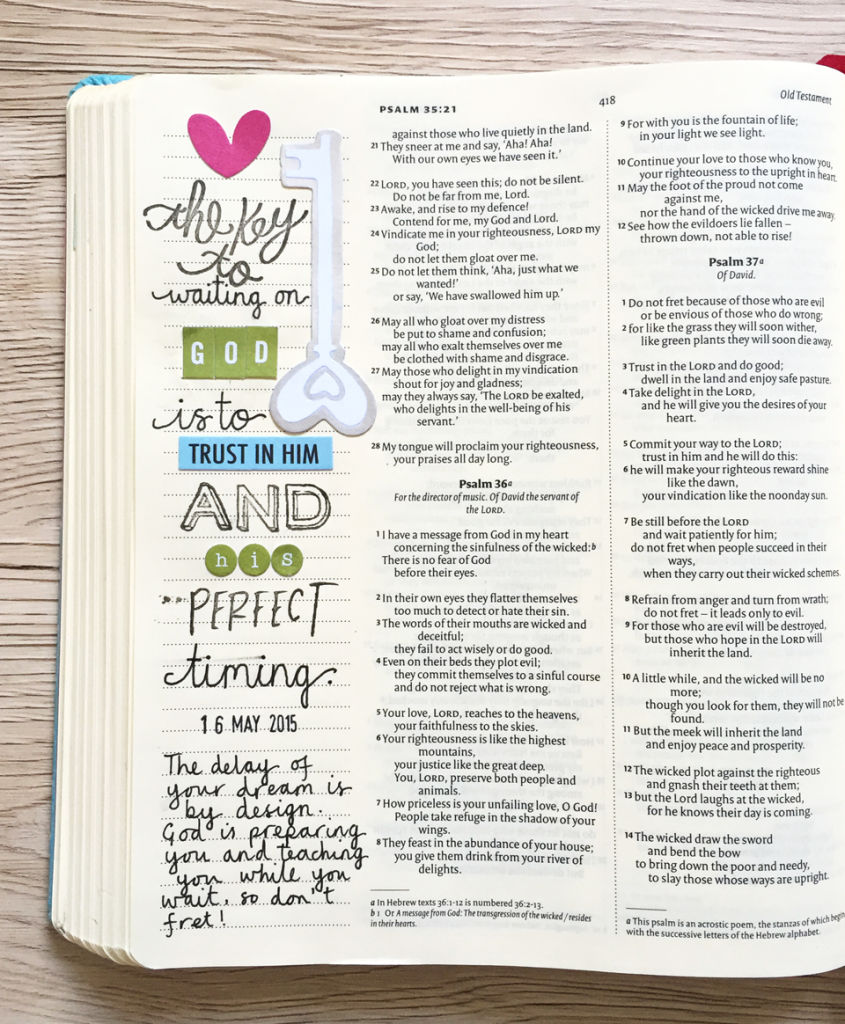 the Key
to
waiting on
GOD
is to
TRUST IN HIM
AND
his
PERFECT
timing.
16 MAY 2015
The delay of
your dream is
by design.
God is preparing
you and teaching
you while you
wait, so don't
fret!
PSALM 35:21
418
Old Testament
against those who live quietly in the land.
21 They sneer at me and say, ‘Aha! Aha!
With our own eyes we have seen it.’
22 LORD, you have seen this; do not be silent.
Do not be far from me, Lord.
23 Awake, and rise to my defence!
Contend for me, my God and Lord.
24 Vindicate me in your righteousness, LORD my
God;
do not let them gloat over me.
25 Do not let them think, ‘Aha, just what we
wanted!’
or say, ‘We have swallowed him up.’
26 May all who gloat over my distress
be put to shame and confusion;
may all who exalt themselves over me
be clothed with shame and disgrace.
27 May those who delight in my vindication
shout for joy and gladness;
may they always say, ‘The LORD be exalted,
who delights in the well-being of his
servant.’
28 My tongue will proclaim your righteousness,
your praises all day long.
Psalm 36a
For the director of music. Of David the servant of
the LORD.
1 I have a message from God in my heart
concerning the sinfulness of the wicked:b
There is no fear of God
before their eyes.
2 In their own eyes they flatter themselves
too much to detect or hate their sin.
3 The words of their mouths are wicked and
deceitful;
they fail to act wisely or do good.
4 Even on their beds they plot evil;
they commit themselves to a sinful course
and do not reject what is wrong.
5 Your love, LORD, reaches to the heavens,
your faithfulness to the skies.
6 Your righteousness is like the highest
mountains,
your justice like the great deep.
You, LORD, preserve both people and
animals.
7 How priceless is your unfailing love, O God!
People take refuge in the shadow of your
wings.
8 They feast in the abundance of your house;
you give them drink from your river of
delights.
a In Hebrew texts 36:1-12 is numbered 36:2-13.
b 1 Or A message from God: The transgression of the wicked / resides
in their hearts.
9 For with you is the fountain of life;
in your light we see light.
10 Continue your love to those who know you,
your righteousness to the upright in heart.
11 May the foot of the proud not come
against me,
nor the hand of the wicked drive me away.
12 See how the evildoers lie fallen –
thrown down, not able to rise!
Psalm 37a
Of David.
1 Do not fret because of those who are evil
or be envious of those who do wrong;
2 for like the grass they will soon wither,
like green plants they will soon die away.
3 Trust in the LORD and do good;
dwell in the land and enjoy safe pasture.
4 Take delight in the LORD,
and he will give you the desires of your
heart.
5 Commit your way to the LORD;
trust in him and he will do this:
6 he will make your righteous reward shine
like the dawn,
your vindication like the noonday sun.
7 Be still before the LORD
and wait patiently for him;
do not fret when people succeed in their
ways,
when they carry out their wicked schemes.
8 Refrain from anger and turn from wrath;
do not fret – it leads only to evil.
9 For those who are evil will be destroyed,
but those who hope in the LORD will
inherit the land.
10 A little while, and the wicked will be no
more;
though you look for them, they will not be
found.
11 But the meek will inherit the land
and enjoy peace and prosperity.
12 The wicked plot against the righteous
and gnash their teeth at them;
13 but the Lord laughs at the wicked,
for he knows their day is coming.
14 The wicked draw the sword
and bend the bow
to bring down the poor and needy,
to slay those whose ways are upright.
a This psalm is an acrostic poem, the stanzas of which begin
with the successive letters of the Hebrew alphabet.